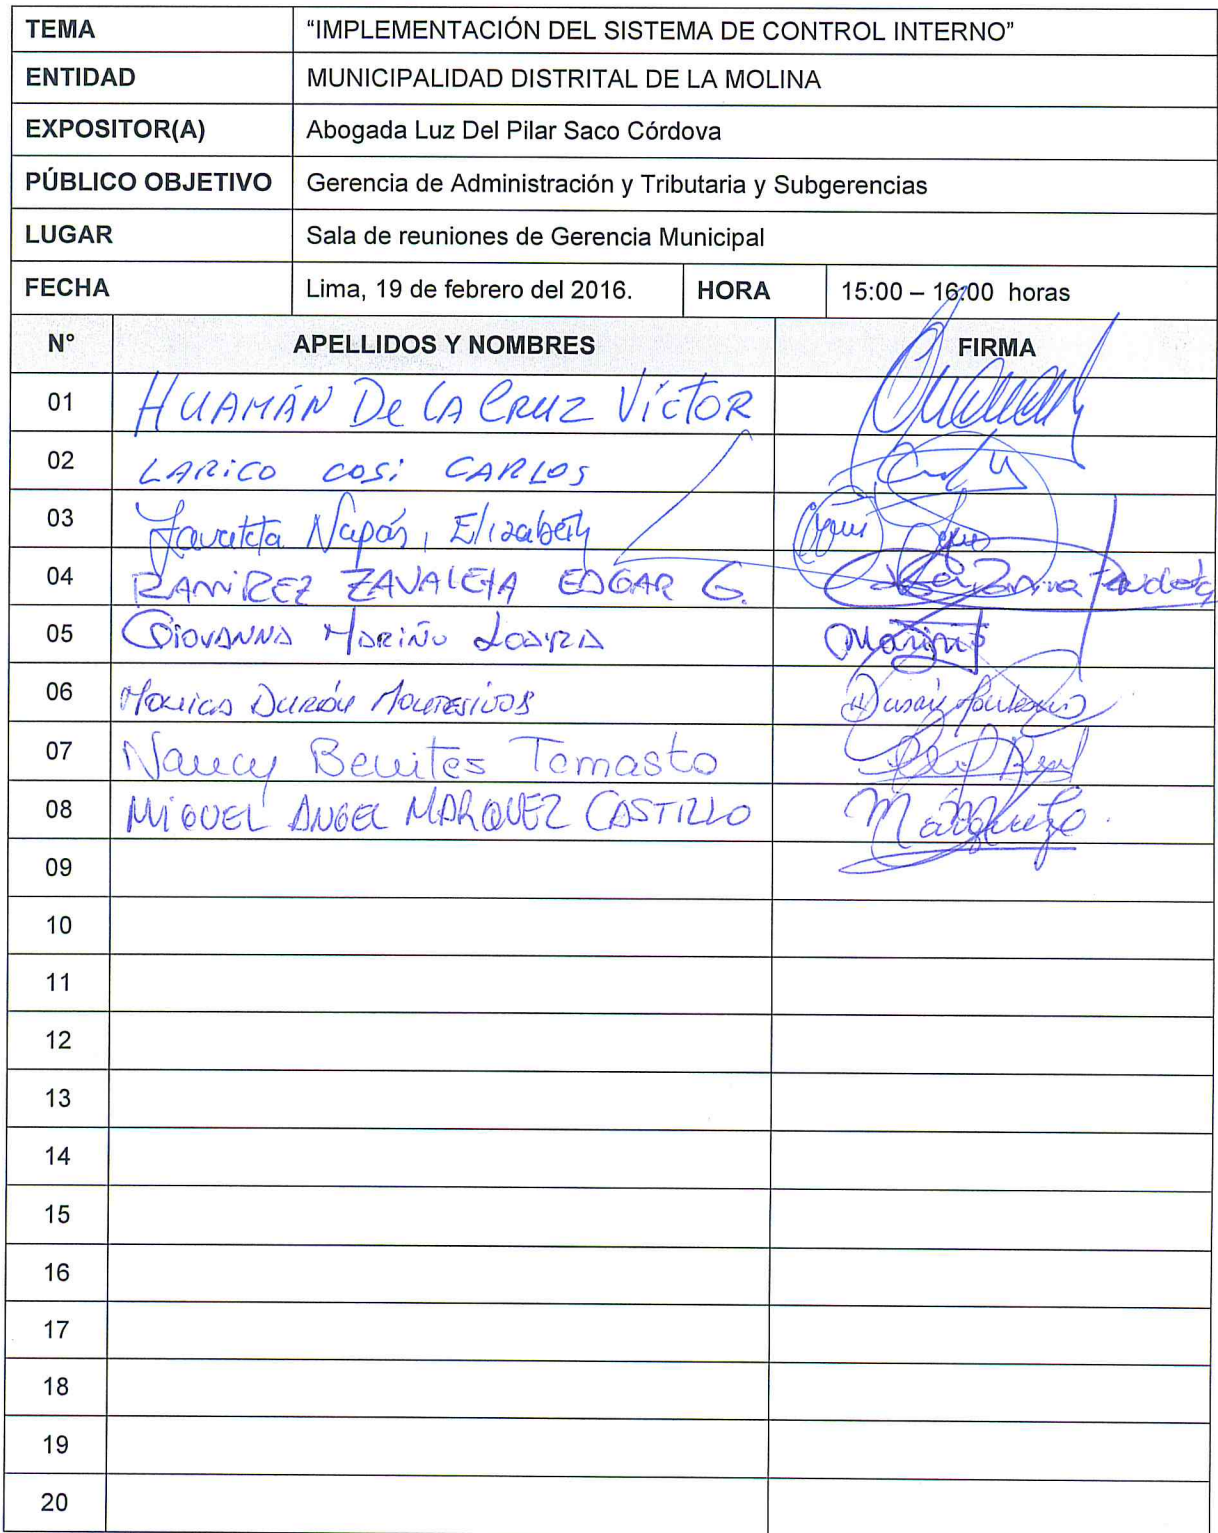 TEMA "IMPLEMENTACIÓN DEL SISTEMA DE CONTROL INTERNO"
ENTIDAD MUNICIPALIDAD DISTRITAL DE LA MOLINA
EXPOSITOR(A) Abogada Luz Del Pilar Saco Córdova
PÚBLICO OBJETIVO Gerencia de Administración y Tributaria y Subgerencias
LUGAR Sala de reuniones de Gerencia Municipal
FECHA Lima, 19 de febrero del 2016. HORA 15:00 – 16:00 horas
N° APELLIDOS Y NOMBRES FIRMA
01 HUAMÁN De LA CRUZ VícTOR
02 LARICO COSi CARLOS
03 Napán, Elizabeth
04 RAMÍREZ ZAVALETA EDGAR G.
05 GIOVANNA MARIÑO LOAYZA
06 MONICA DURÁN MONTESINOS
07 Nancy Benites Tomasto
08 MIGUEL ANGEL MARQUEZ CASTILLO
09
10
11
12
13
14
15
16
17
18
19
20